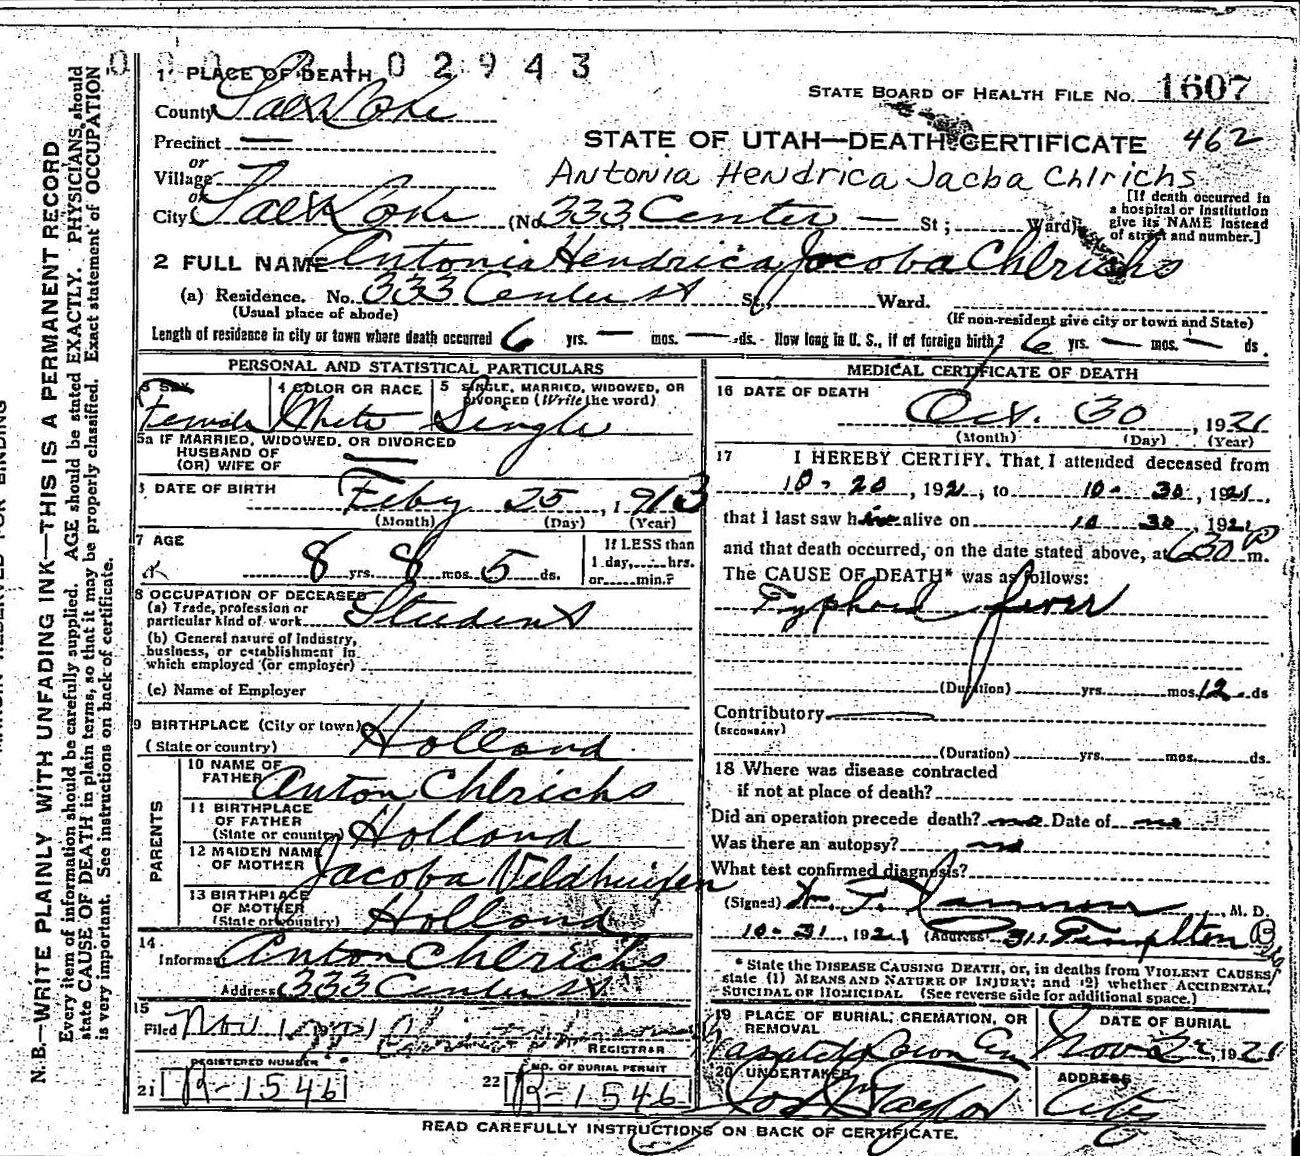 102943
1 PLACE OF DEATH
STATE BOARD OF HEALTH FILE NO. 1607
County Salt Lake
Precinct —
STATE OF UTAH—DEATH CERTIFICATE 462
or
Village
Antonia Hendrica Jacba Chlrichs
or
City Salt Lake (No. 333 Center — St; Ward)
[If death occurred in
a hospital or institution
give its NAME instead
of street and number.]
2 FULL NAME Antonia Hendrica Jacoba Chlrichs
(a) Residence. No. 333 Center St St., Ward.
(Usual place of abode)
(If non-resident give city or town and State)
Length of residence in city or town where death occurred 6 yrs. — mos. — ds. How long in U. S., if of foreign birth? 6 yrs. — mos. — ds.
PERSONAL AND STATISTICAL PARTICULARS
3 SEX Female
4 COLOR OR RACE White
5 SINGLE, MARRIED, WIDOWED, OR
DIVORCED (Write the word)
Single
5a IF MARRIED, WIDOWED, OR DIVORCED
HUSBAND OF
(OR) WIFE OF —
DATE OF BIRTH Feby 25, 1913
(Month) (Day) (Year)
7 AGE
8 yrs. 8 mos. 5 ds.
If LESS than
1 day, hrs.
or min.?
8 OCCUPATION OF DECEASED
(a) Trade, profession or
particular kind of work Student
(b) General nature of Industry,
business, or establishment in
which employed (or employer)
(c) Name of Employer
9 BIRTHPLACE (City or town)
(State or country) Holland
PARENTS
10 NAME OF
FATHER Anton Chlrichs
11 BIRTHPLACE
OF FATHER
(State or country) Holland
12 MAIDEN NAME
OF MOTHER Jacoba Veldhuizen
13 BIRTHPLACE
OF MOTHER
(State or country) Holland
14
Informant Anton Chlrichs
Address 333 Center St
15
Filed Nov 1
REGISTRAR
REGISTERED NUMBER
21 R-1546
NO. OF BURIAL PERMIT
22 R-1546
MEDICAL CERTIFICATE OF DEATH
16 DATE OF DEATH
Oct. 30, 1921
(Month) (Day) (Year)
17 I HEREBY CERTIFY. That I attended deceased from
10-20, 1921, to 10-30, 1921,
that I last saw h alive on 10 30, 1921
and that death occurred, on the date stated above, at 630 P m.
The CAUSE OF DEATH* was as follows:
Typhoid fever
(Duration) yrs. mos. 12 ds
Contributory —
(SECONDARY)
(Duration) yrs. mos. ds.
18 Where was disease contracted
if not at place of death?
Did an operation precede death? no Date of no
Was there an autopsy? no
What test confirmed diagnosis?
(Signed) M. D.
10-31, 1921 (Address 311 Templton Bldg
* State the DISEASE CAUSING DEATH, or, in deaths from VIOLENT CAUSES,
state (1) MEANS AND NATURE OF INJURY; and (2) whether ACCIDENTAL,
SUICIDAL OR HOMICIDAL (See reverse side for additional space.)
19 PLACE OF BURIAL, CREMATION, OR
REMOVAL
Wasatch Lawn
DATE OF BURIAL
Nov 2, 1921
20 UNDERTAKER
Jos Wm Taylor
ADDRESS
City
READ CAREFULLY INSTRUCTIONS ON BACK OF CERTIFICATE.
N. B.—WRITE PLAINLY WITH UNFADING INK—THIS IS A PERMANENT RECORD
Every item of information should be carefully supplied. AGE should be stated EXACTLY. PHYSICIANS should
state CAUSE OF DEATH in plain terms, so that it may be properly classified. Exact statement of OCCUPATION
is very important. See instructions on back of certificate.